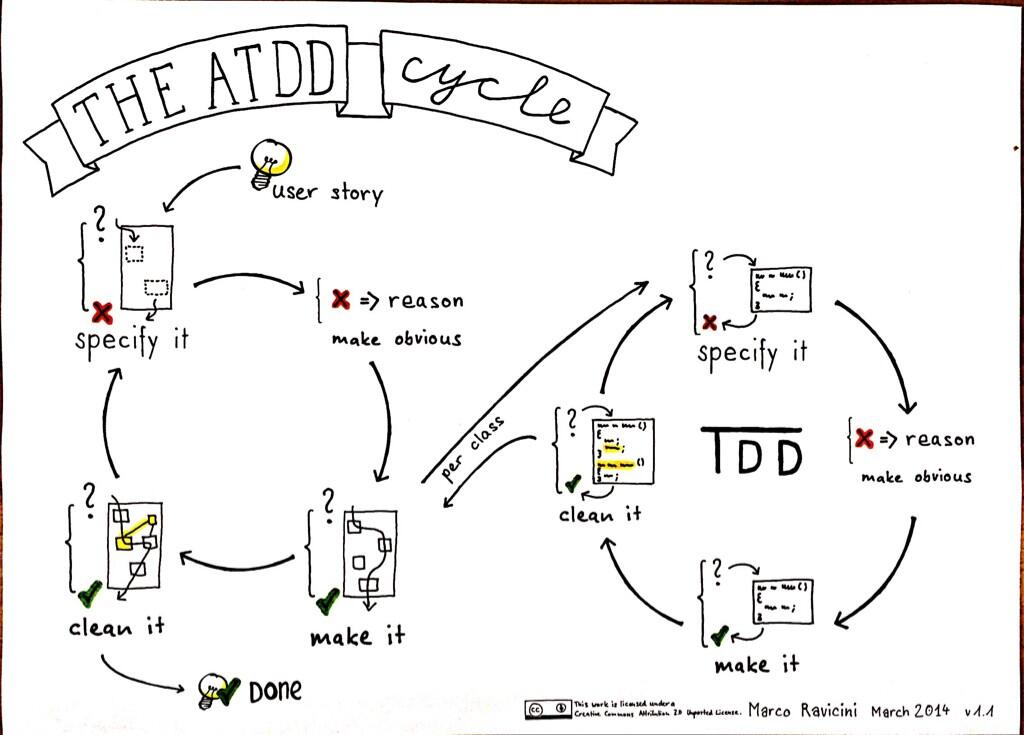 THE ATDD cycle
user story
?
specify it
=> reason
make obvious
?
make it
?
clean it
DONE
per class
TDD
?
specify it
=> reason
make obvious
?
make it
?
clean it
cc
This work is licensed under a
Creative Commons Attribution 2.0 Unported License.
Marco Ravicini March 2014 v1.1